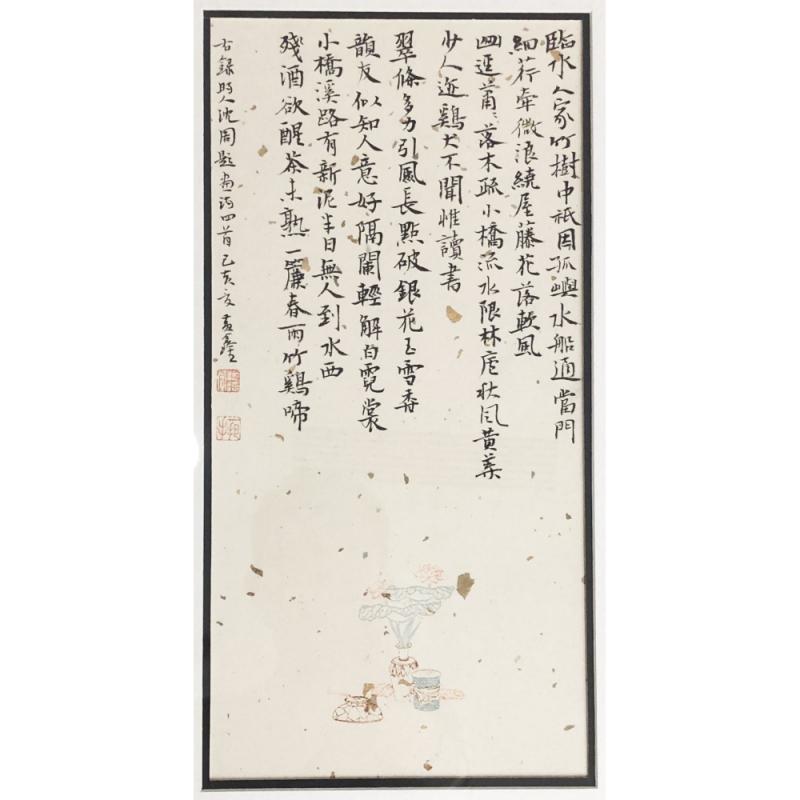 臨水人家竹樹中祇因孤嶼水船通當門
細荇牽微浪繞屋藤花落軟風
迤蕭〻落木疏小橋流水限林廬秋風黄葉
少人迹鷄犬不聞惟讀書
翠條多力引風長點破銀花玉雪香
韻友似知人意好隔闌輕解白霓裳
小橋溪路有新泥半日無人到水西
殘酒欲醒茶未熟一簾春雨竹鷄啼
右録明人沈周題畫詩四首乙亥